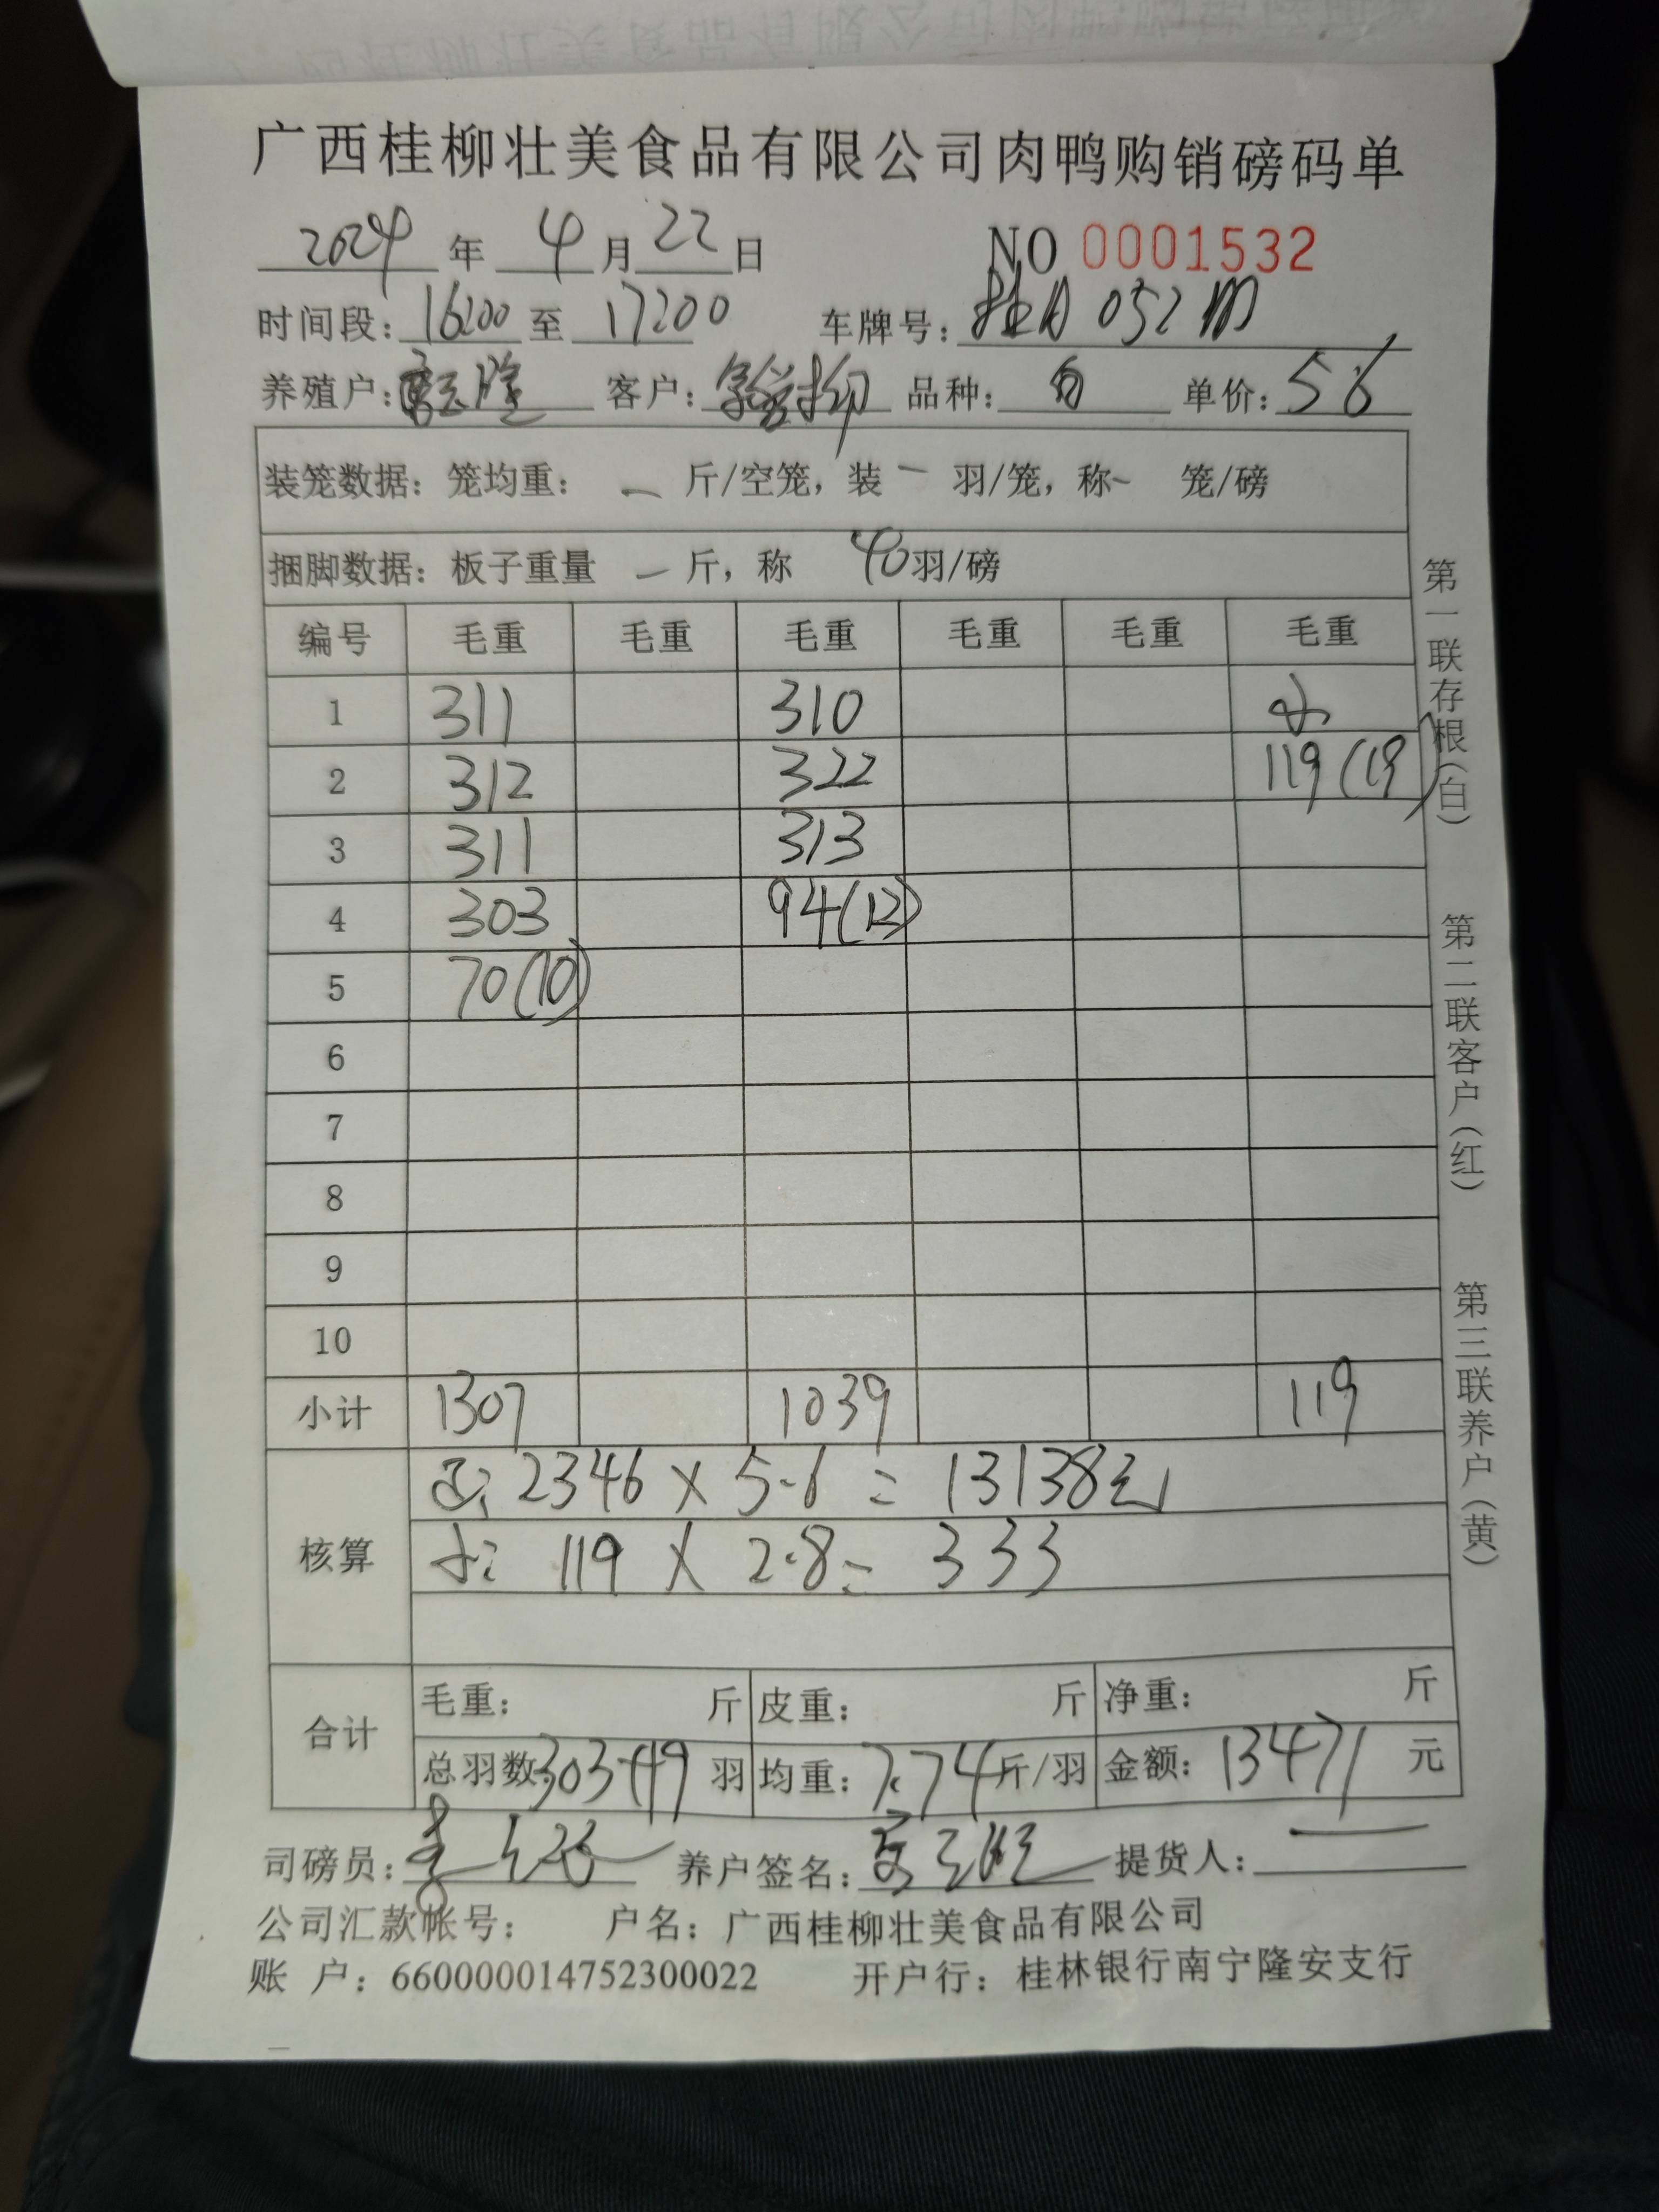 广西桂柳壮美食品有限公司肉鸭购销磅码单
2024 年 4 月 22 日 NO 0001532
时间段: 16:00 至 17:00 车牌号: 桂A 052
养殖户: 客户: 品种: 单价: 5.6
装笼数据: 笼均重: — 斤/空笼, 装 — 羽/笼, 称 — 笼/磅
捆脚数据: 板子重量 — 斤, 称 40 羽/磅
编号 毛重 毛重 毛重 毛重 毛重 毛重
1 311 310 小
2 312 322 119 (19)
3 311 313
4 303 94(12)
5 70(10)
6
7
8
9
10
小计 1307 1039 119
核算
正: 2346 × 5.6 = 13138元
小: 119 × 2.8 = 333
合计
毛重: 斤 皮重: 斤 净重: 斤
总羽数: 303+19 羽 均重: 7.74 斤/羽 金额: 13471 元
司磅员: 养户签名: 提货人: —
公司汇款帐号: 户名: 广西桂柳壮美食品有限公司
账 户: 660000014752300022 开户行: 桂林银行南宁隆安支行
第一联存根(白)
第二联客户(红)
第三联养户(黄)